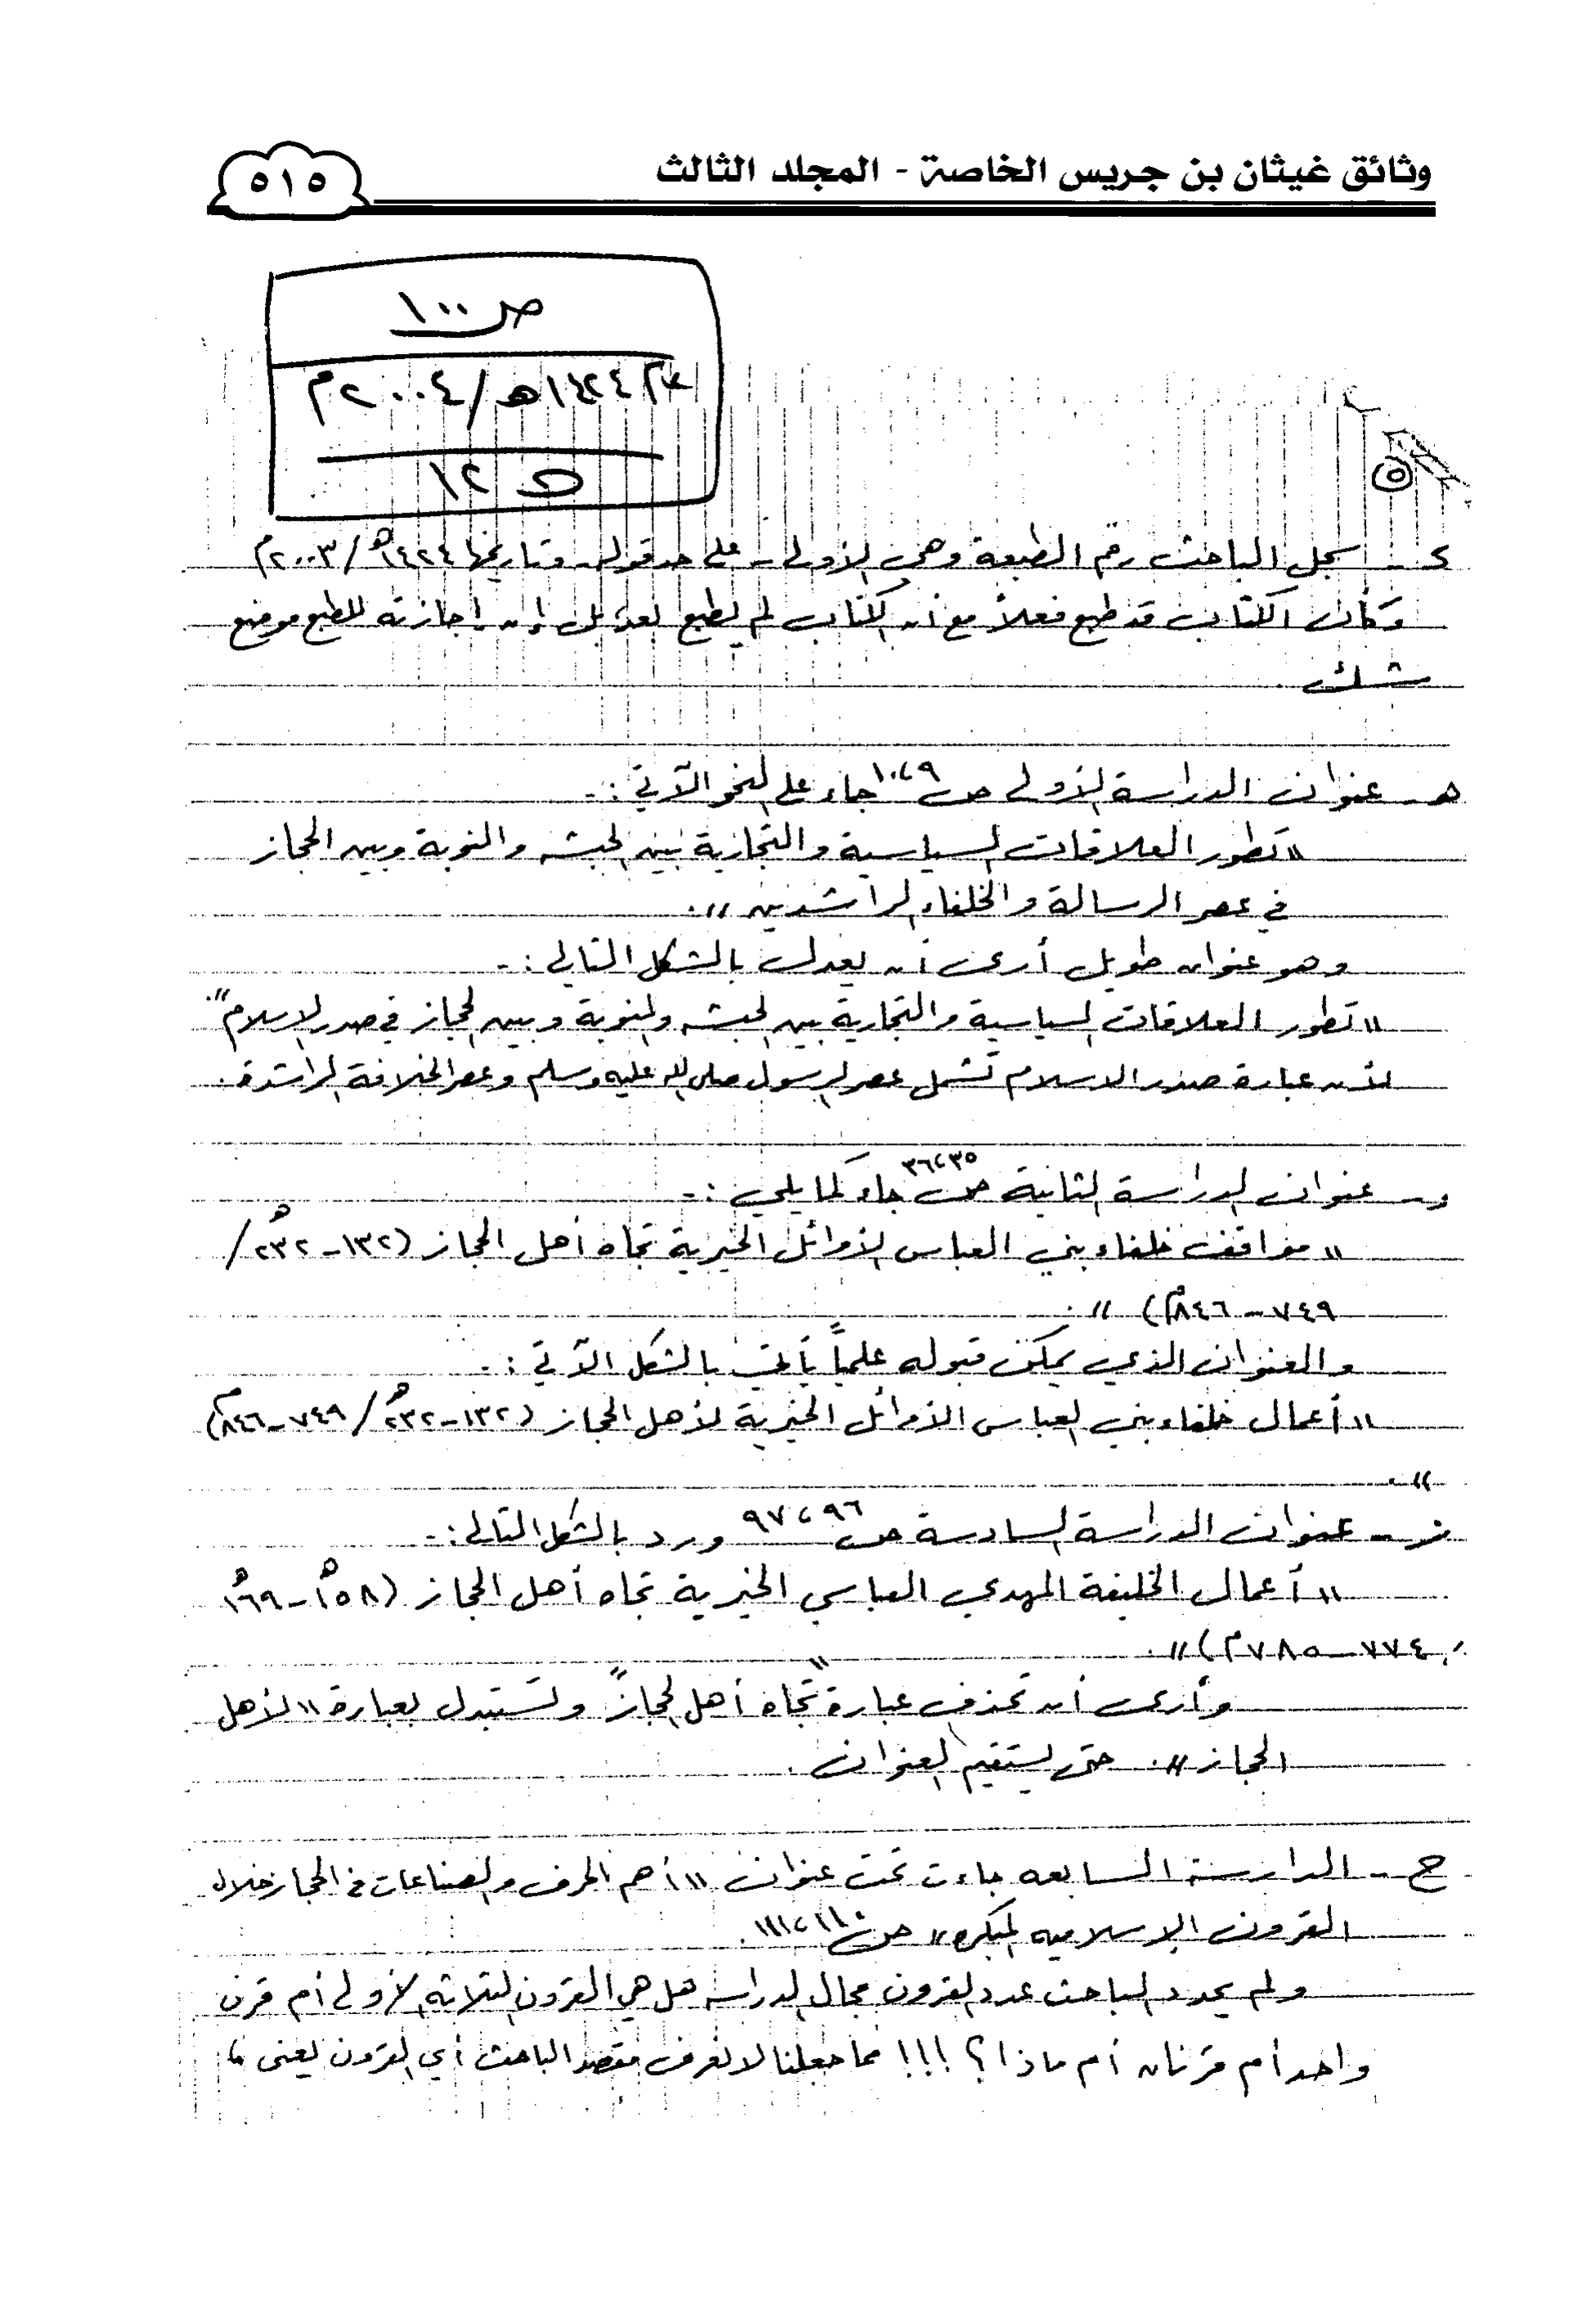 وثائق غيثان بن جريس الخاصة - المجلد الثالث
٥١٥
ص ١٠٠
١٤٢٤هـ/٢٠٠٤م
١٢
٥
د - سجل الباحث رقم الطبعة وهي الأولى - على حد قوله - وتاريخها ١٤٢٤هـ/٢٠٠٣م
وكأن الكتاب قد طبع فعلاً مع أن الكتاب لم يطبع بعد بل إن إجازته للطبع موضع
شك
هـ - عنوان الدراسة الأولى ص ٩، ١٠ جاء على النحو الآتي :-
" تطور العلاقات السياسية والتجارية بين الحبشه والنوبة وبين الحجاز
في عصر الرسالة والخلفاء الراشدين ".
وهو عنوان طويل أرى أن يعدل بالشكل التالي :-
" تطور العلاقات السياسية والتجارية بين الحبشه والنوبة وبين الحجاز في صدر الإسلام ".
لأن عبارة صدر الاسلام تشمل عصر الرسول صلى الله عليه وسلم وعصر الخلافة الراشدة .
و - عنوان الدراسة الثانية ص ٣٥، ٣٦ جاء كما يلي :-
" مواقف خلفاء بني العباس الأوائل الخيرية تجاه أهل الحجاز (١٣٢ - ٢٣٢هـ/
٧٤٩ - ٨٤٦م) " .
والعنوان الذي يمكن قبوله علمياً يأتي بالشكل الآتي :-
" أعمال خلفاء بني العباس الأوائل الخيرية لأهل الحجاز (١٣٢ - ٢٣٢هـ/٧٤٩ - ٨٤٦م)
" .
ز - عنوان الدراسة السادسة ص ٩٦، ٩٧ ورد بالشكل التالي :-
" أعمال الخليفة المهدي العباسي الخيرية تجاه أهل الحجاز (١٥٨هـ - ١٦٩هـ
/ ٧٧٤ - ٧٨٥م) " .
وأرى أن تحذف عبارة " تجاه أهل الحجاز " وتستبدل بعبارة " لأهل
الحجاز " . حتى يستقيم العنوان .
ح - الدارسة السابعه جاءت تحت عنوان " أهم الحرف والصناعات في الحجاز خلال
القرون الإسلاميه المبكره " ص ١١٠، ١١١ .
ولم يحدد الباحث عدد القرون مجال الدراسه هل هي القرون الثلاثه الأولى أم قرن
واحد أم قرنان أم ماذا ؟ !!! مما جعلنا لا نعرف مقصد الباحث أي القرون يعني